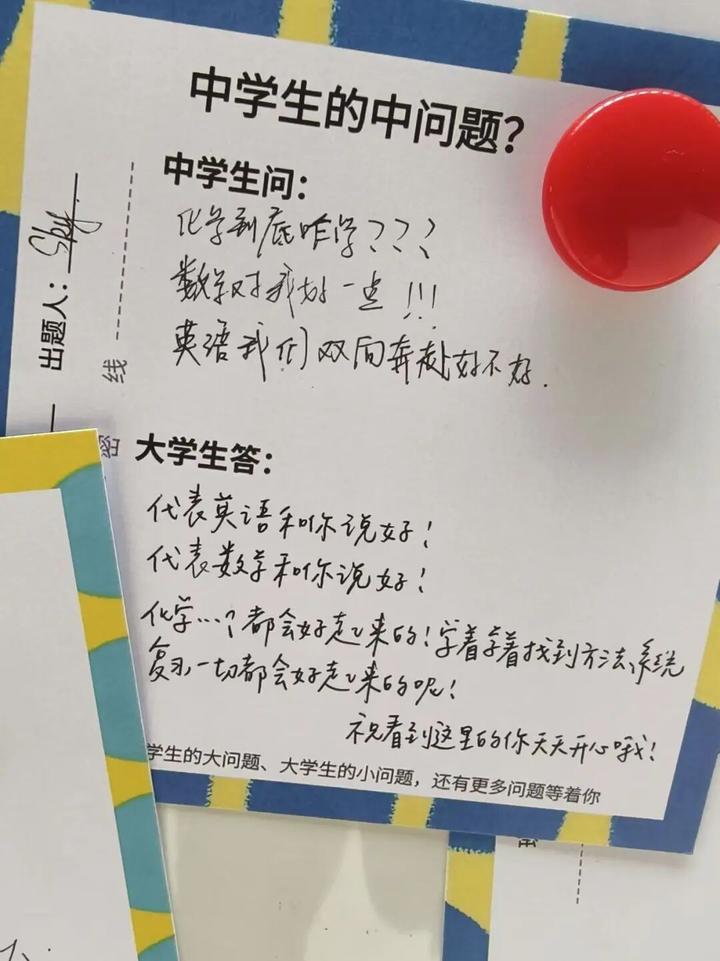 中学生的中问题？
中学生问：
化学到底咋学？？？
数学对我好一点！！！
英语我们双向奔赴好不好.
出题人：Sky.
线
密
大学生答：
代表英语和你说好！
代表数学和你说好！
化学…？都会好起来的！学着学着找到方法、系统
复习，一切都会好起来的呢！
祝看到这里的你天天开心哦！
学生的大问题、大学生的小问题，还有更多问题等着你